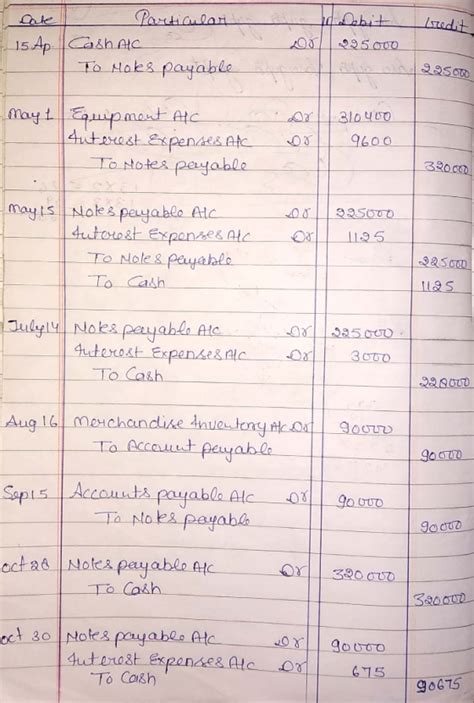 Date Particular Debit Credit
15 Ap Cash A/c Dr 225000
To Notes payable 225000
May 1 Equipment A/c Dr 310400
Interest Expenses A/c Dr 9600
To Notes payable 320000
May 15 Notes payable A/c Dr 225000
Interest Expenses A/c Dr 1125
To Notes payable 225000
To Cash 1125
July 14 Notes payable A/c Dr 225000
Interest Expenses A/c Dr 3000
To Cash 228000
Aug 16 Merchandise Inventory A/c Dr 90000
To Account payable 90000
Sep 15 Accounts payable A/c Dr 90000
To Notes payable 90000
Oct 28 Notes payable A/c Dr 320000
To Cash 320000
Oct 30 Notes payable A/c Dr 90000
Interest Expenses A/c Dr 675
To Cash 90675